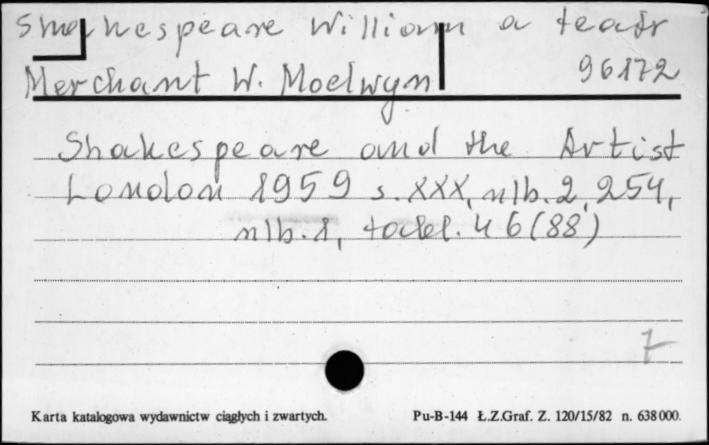 Shakespeare William a teatr
Merchant W. Moelwyn 96172
Shakespeare and the Artist
London 1959 s. XXX, nlb. 2, 254,
nlb. 1, tabl. 46 (88)
7
Karta katalogowa wydawnictw ciągłych i zwartych. Pu-B-144 Ł.Z.Graf. Z. 120/15/82 n. 638000.